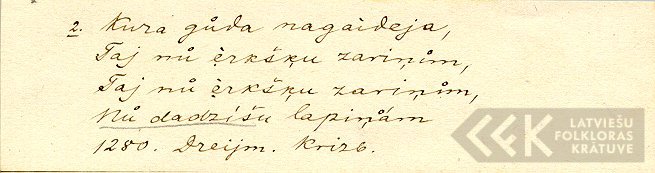 2. Kura gůda nagaideja,
Taj nů èrkšķu zariņům,
Taj nů èrkšķu zariņům,
Nů dadzíšu lapiņám
1280. Dreijm. Krizb.
LATVIEŠU
FOLKLORAS
KRĀTUVE